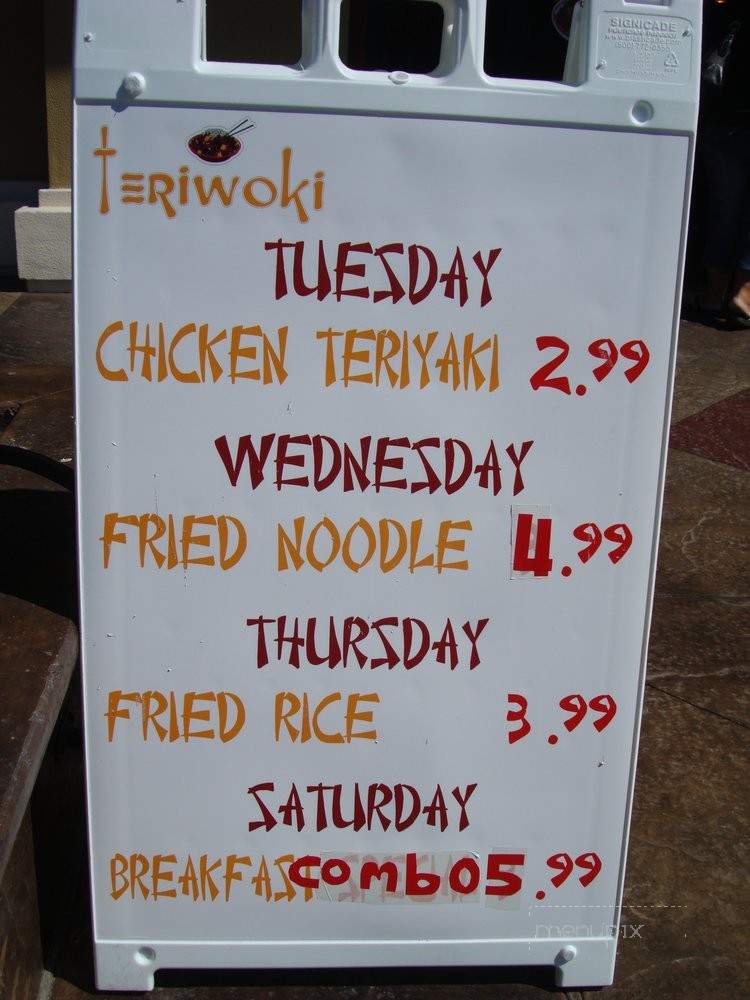 SIGNICADE
teriwoki
TUESDAY
CHICKEN TERIYAKI 2.99
WEDNESDAY
FRIED NOODLE 4.99
THURSDAY
FRIED RICE 3.99
SATURDAY
BREAKFAST combo 5.99
menupix